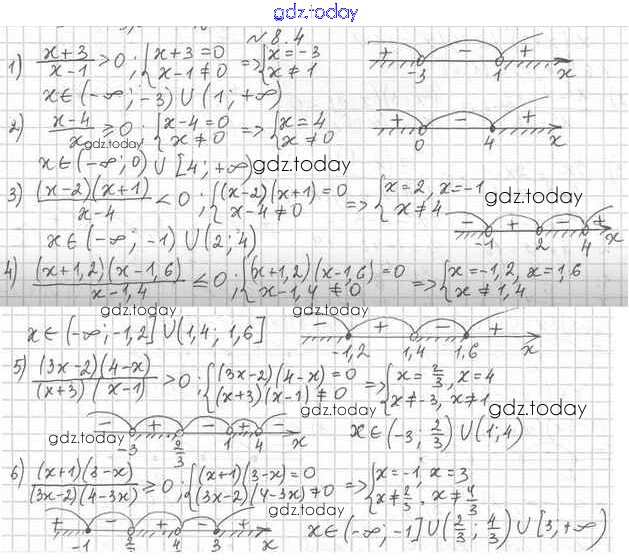 gdz.today
№ 8.4
1) (x+3)/(x-1) > 0 ; { x+3=0 x-1≠0 => { x=-3 x≠1
+ - + -3 1 x
x∈(-∞;-3)∪(1;+∞)
2) (x-4)/x ≥ 0 ; { x-4=0 x≠0 => { x=4 x≠0
+ - + 0 4 x
gdz.today
x∈(-∞;0)∪[4;+∞)
gdz.today
3) ((x-2)(x+1))/(x-4) < 0 ; { (x-2)(x+1)=0 x-4≠0 => { x=2, x=-1 x≠4
gdz.today
- + - + -1 2 4 x
x∈(-∞;-1)∪(2;4)
4) ((x+1,2)(x-1,6))/(x-1,4) ≤ 0 ; { (x+1,2)(x-1,6)=0 x-1,4≠0 => { x=-1,2, x=1,6 x≠1,4
gdz.today
gdz.today
x∈(-∞;-1,2]∪(1,4; 1,6]
- + - + -1,2 1,4 1,6 x
5) ((3x-2)(4-x))/((x+3)(x-1)) > 0 ; { (3x-2)(4-x)=0 (x+3)(x-1)≠0 => { x=2/3, x=4 x≠-3, x≠1
gdz.today
gdz.today
- + - + - -3 2/3 1 4 x
gdz.today
x∈(-3; 2/3)∪(1;4)
6) ((x+1)(3-x))/((3x-2)(4-3x)) ≥ 0 ; { (x+1)(3-x)=0 (3x-2)(4-3x)≠0 => { x=-1, x=3 x≠2/3, x≠4/3
gdz.today
gdz.today
+ - + - + -1 3 x
x∈(-∞;-1]∪(2/3; 4/3)∪[3,+∞)